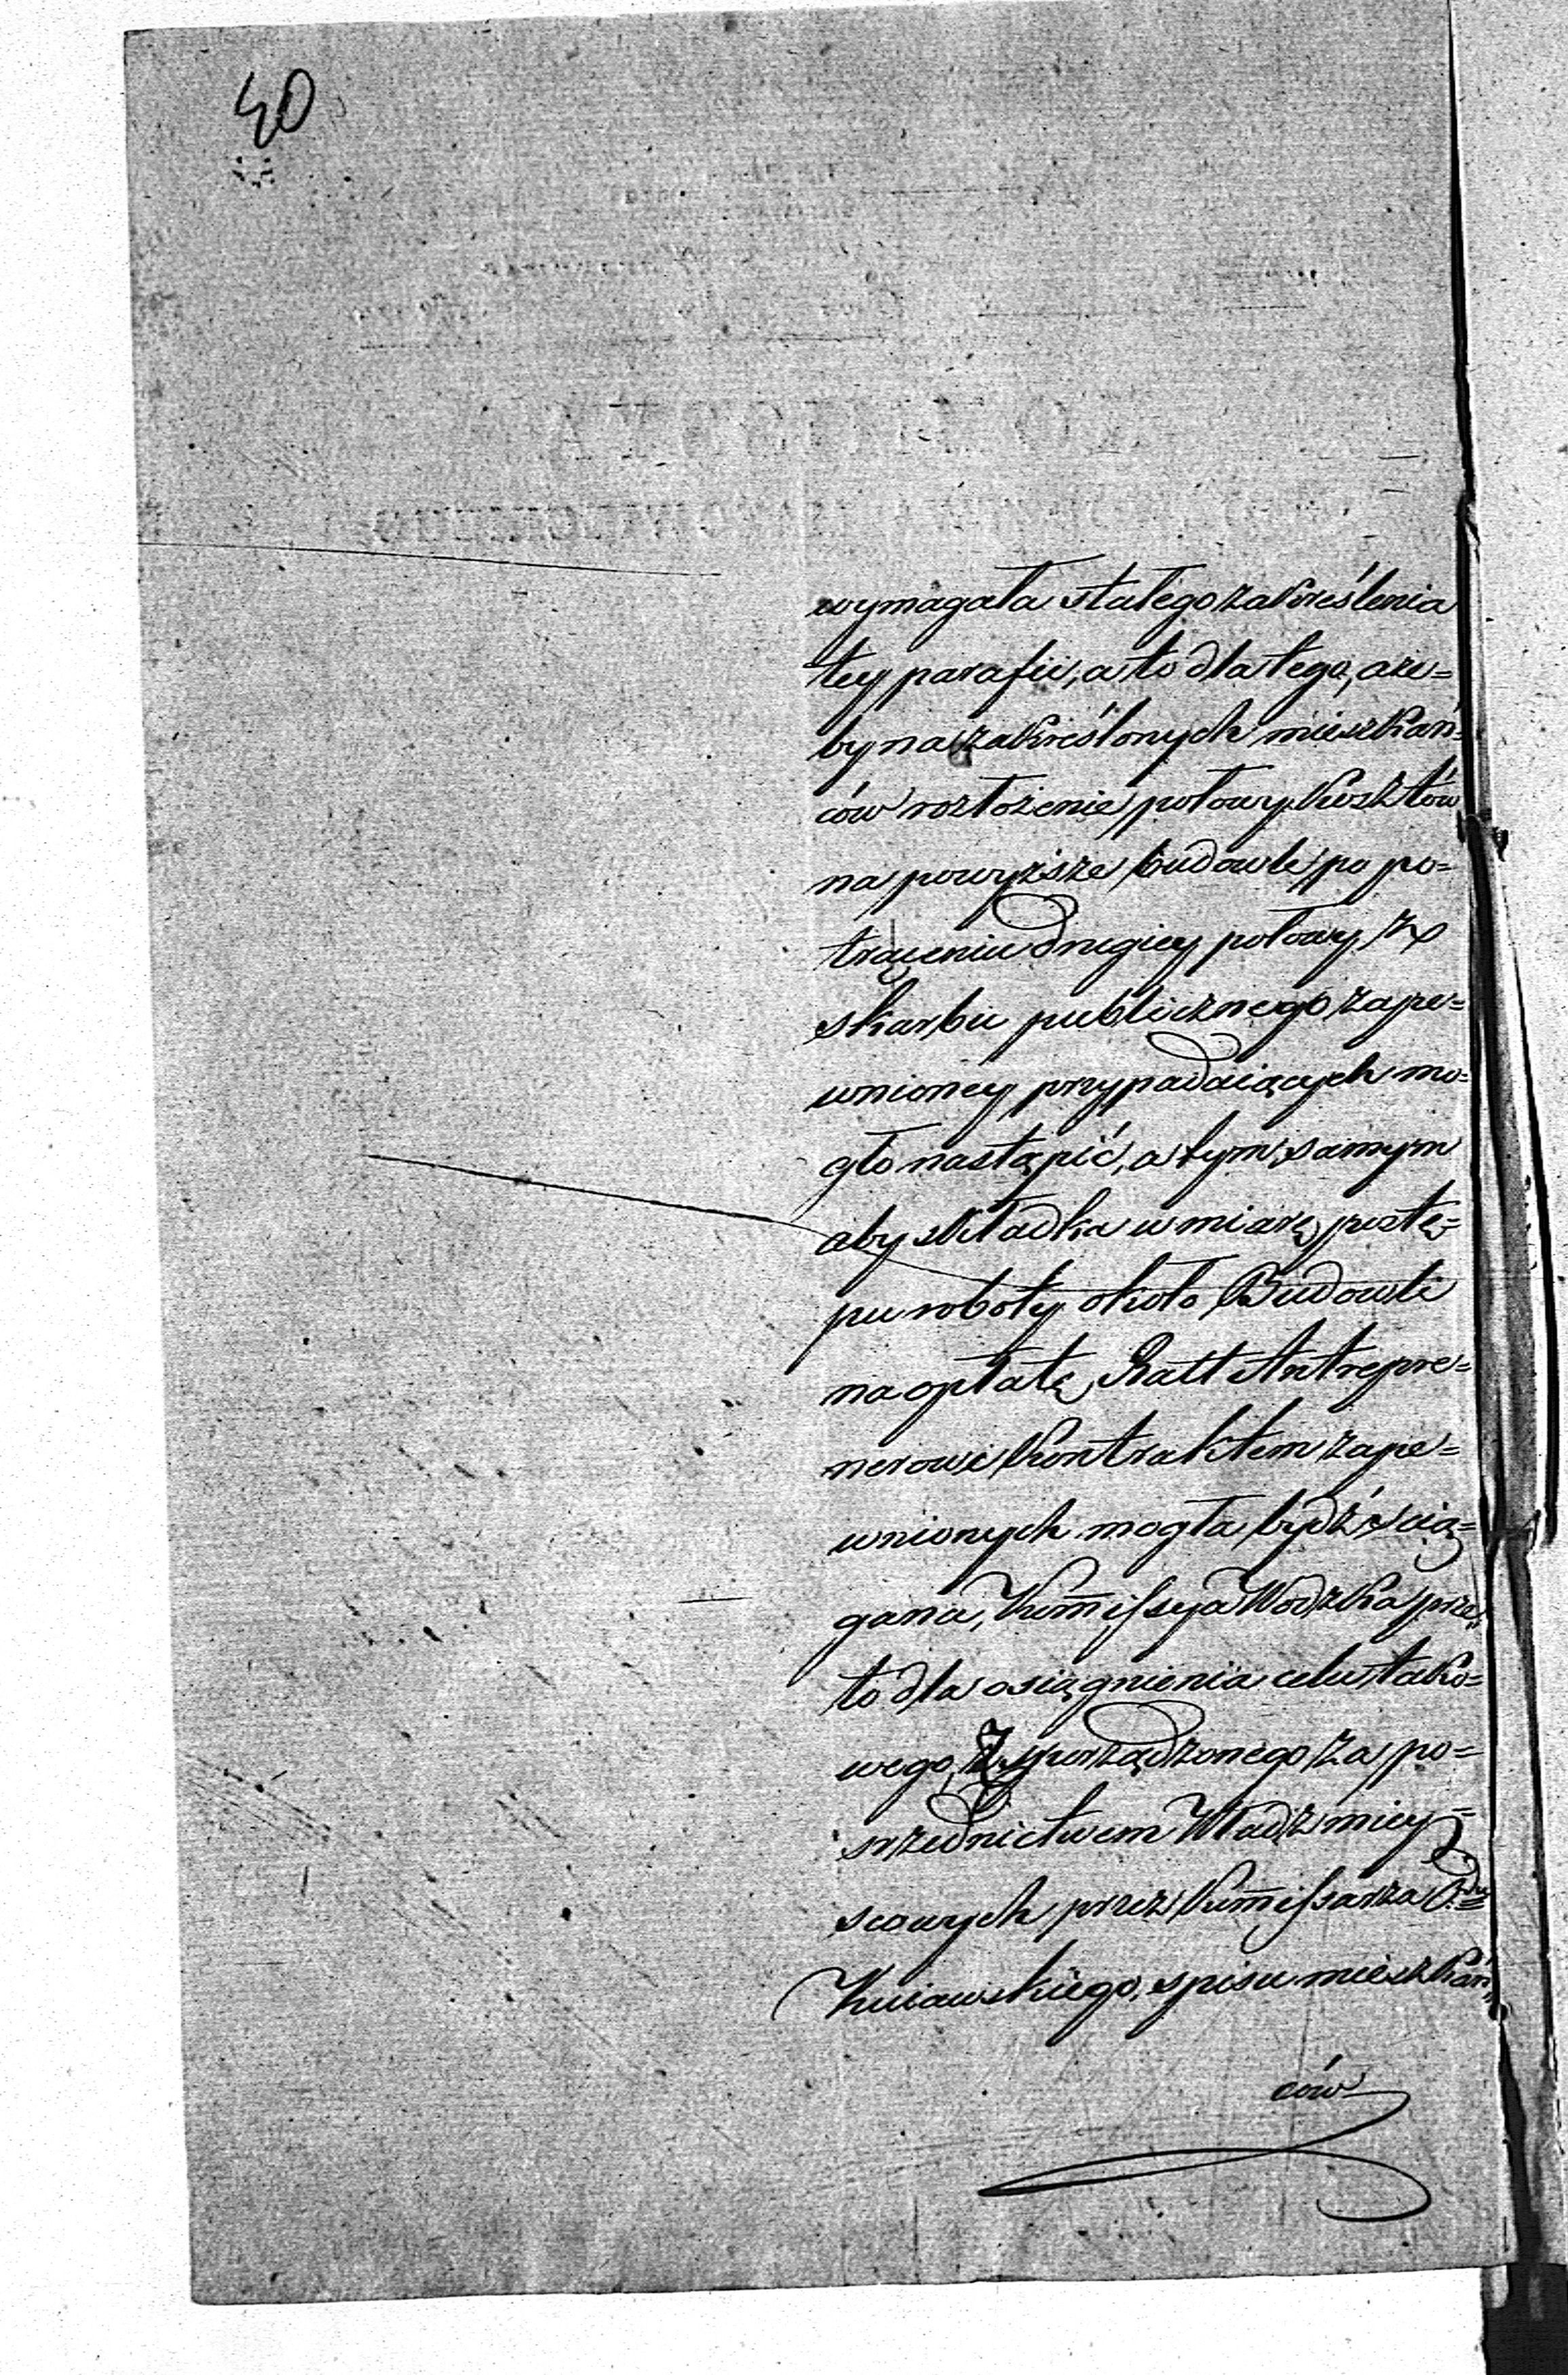 40
wymagała stałego zakreślenia
tey parafii, a to dla tego, aże=
by na zakreślonych mieszkań=
ców rozłożenie połowy kosztów
na powyższe budowle po po=
trąceniu drugiey połowy z
skarbu publicznego zape=
wnioney przypadaiących mo=
gło nastąpić, a tym samym
aby składka w miarę postę=
pu roboty około Budowli
na opłatę Ratt Antrepre=
nerowi kontraktem zape=
wnionych mogła bydź ścią=
gana, Kom̄issya Wodzka prze
to dla osiągnienia celu tako=
wego, z sporządzonego za po=
srzednictwem Władz miey=
scowych przez Kom̄issarza Obdu
Kuiawskiego, spisu mieszkań
ców